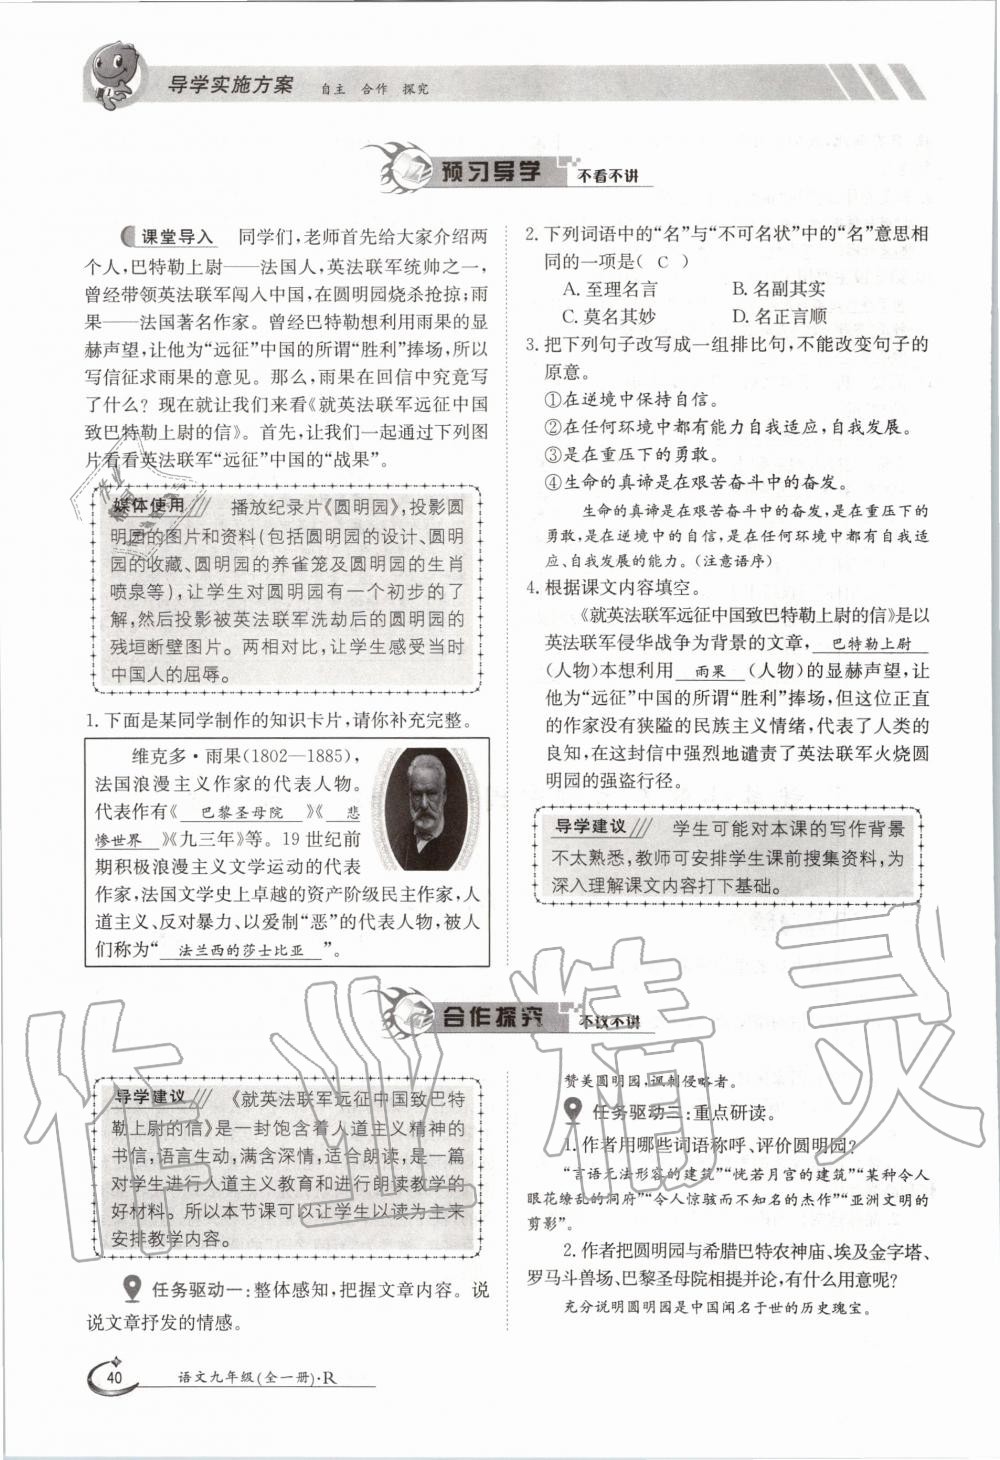 导学实施方案 自主 合作 探究
预习导学 不看不讲
课堂导入 同学们,老师首先给大家介绍两
个人,巴特勒上尉——法国人,英法联军统帅之一,
曾经带领英法联军闯入中国,在圆明园烧杀抢掠;雨
果——法国著名作家。曾经巴特勒想利用雨果的显
赫声望,让他为“远征”中国的所谓“胜利”捧场,所以
写信征求雨果的意见。那么,雨果在回信中究竟写
了什么？现在就让我们来看《就英法联军远征中国
致巴特勒上尉的信》。首先,让我们一起通过下列图
片看看英法联军“远征”中国的“战果”。
媒体使用 播放纪录片《圆明园》,投影圆
明园的图片和资料(包括圆明园的设计、圆明
园的收藏、圆明园的养雀笼及圆明园的生肖
喷泉等),让学生对圆明园有一个初步的了
解,然后投影被英法联军洗劫后的圆明园的
残垣断壁图片。两相对比,让学生感受当时
中国人的屈辱。
1.下面是某同学制作的知识卡片,请你补充完整。
维克多·雨果(1802—1885),
法国浪漫主义作家的代表人物。
代表作有《 巴黎圣母院 》《 悲
惨世界 》《九三年》等。19世纪前
期积极浪漫主义文学运动的代表
作家,法国文学史上卓越的资产阶级民主作家,人
道主义、反对暴力、以爱制“恶”的代表人物,被人
们称为“ 法兰西的莎士比亚 ”。
2.下列词语中的“名”与“不可名状”中的“名”意思相
同的一项是( C )
A.至理名言 B.名副其实
C.莫名其妙 D.名正言顺
3.把下列句子改写成一组排比句,不能改变句子的
原意。
①在逆境中保持自信。
②在任何环境中都有能力自我适应,自我发展。
③是在重压下的勇敢。
④生命的真谛是在艰苦奋斗中的奋发。
生命的真谛是在艰苦奋斗中的奋发,是在重压下的
勇敢,是在逆境中的自信,是在任何环境中都有自我适
应、自我发展的能力。(注意语序)
4.根据课文内容填空。
《就英法联军远征中国致巴特勒上尉的信》是以
英法联军侵华战争为背景的文章, 巴特勒上尉
(人物)本想利用 雨果 (人物)的显赫声望,让
他为“远征”中国的所谓“胜利”捧场,但这位正直
的作家没有狭隘的民族主义情绪,代表了人类的
良知,在这封信中强烈地谴责了英法联军火烧圆
明园的强盗行径。
导学建议 学生可能对本课的写作背景
不太熟悉,教师可安排学生课前搜集资料,为
深入理解课文内容打下基础。
合作探究 不议不讲
导学建议 《就英法联军远征中国致巴特
勒上尉的信》是一封饱含着人道主义精神的
书信,语言生动,满含深情,适合朗读,是一篇
对学生进行人道主义教育和进行朗读教学的
好材料。所以本节课可以让学生以读为主来
安排教学内容。
任务驱动一:整体感知,把握文章内容。说
说文章抒发的情感。
赞美圆明园,讽刺侵略者。
任务驱动二:重点研读。
1.作者用哪些词语称呼、评价圆明园？
“言语无法形容的建筑”“恍若月宫的建筑”“某种令人
眼花缭乱的洞府”“令人惊骇而不知名的杰作”“亚洲文明的
剪影”。
2.作者把圆明园与希腊巴特农神庙、埃及金字塔、
罗马斗兽场、巴黎圣母院相提并论,有什么用意呢？
充分说明圆明园是中国闻名于世的历史瑰宝。
40 语文九年级(全一册)·R
作业精灵